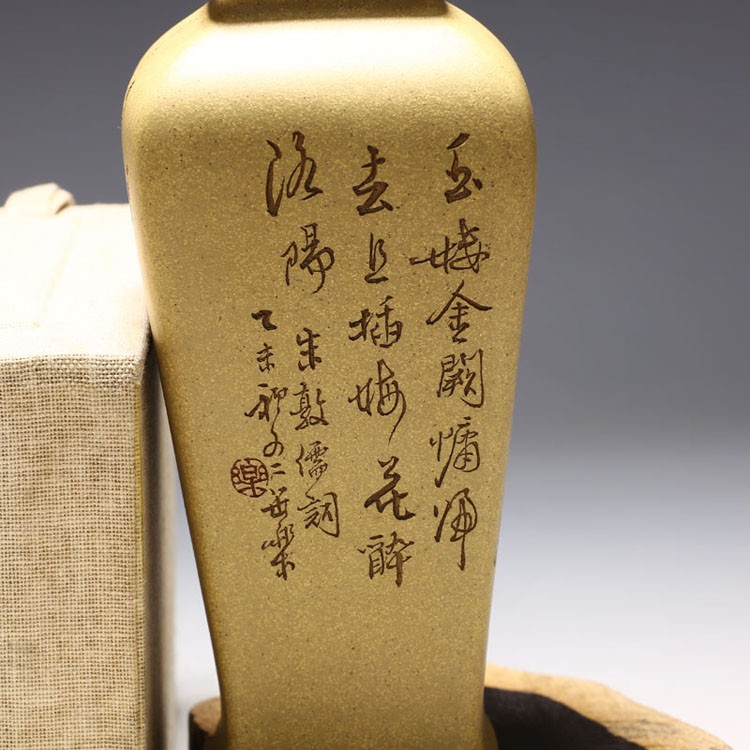 玉樓金闕慵歸
去且插梅花醉
洛陽
朱敦儒詞
乙未二樂
樂